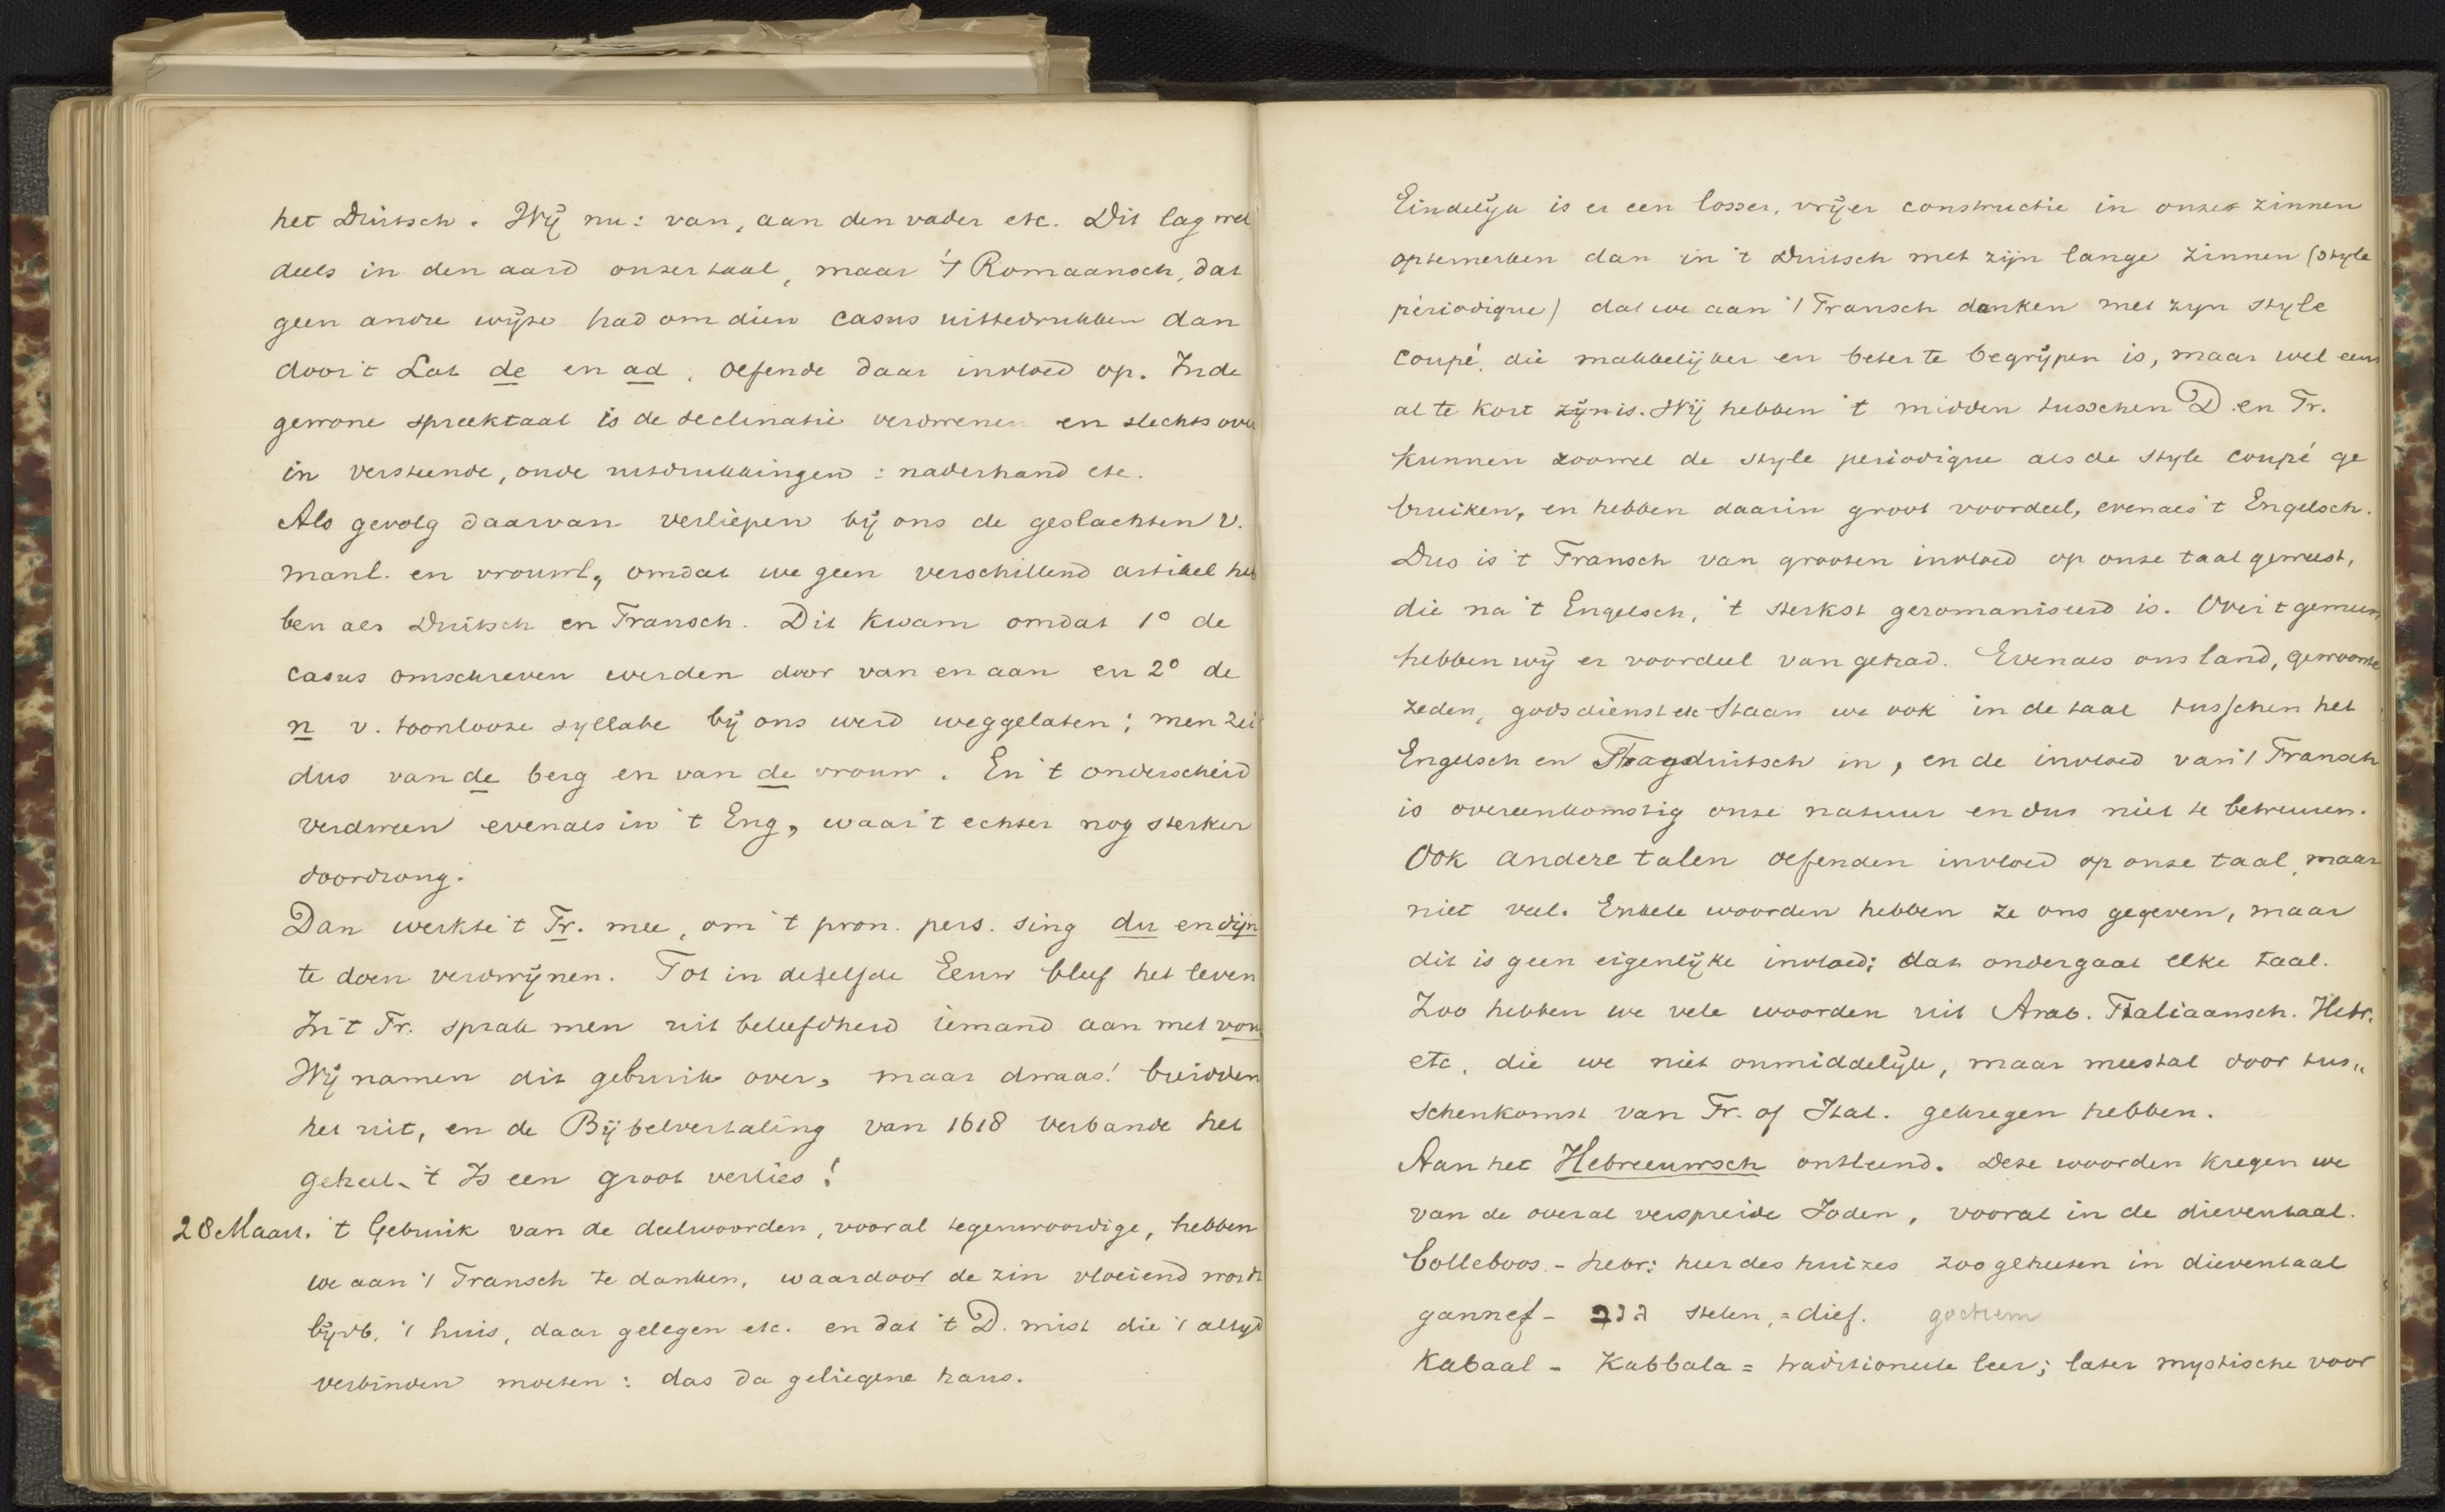 het Duitsch. Wij nu: van, aan den vader etc. Dit lag wel
deels in den aard onzer taal, maar 't Romaansch, dat
geen andre wijze had om dien casus uittedrukken dan
door 't Lat de en ad, oefende daar invloed op. In de
gewone spreektaal is de declinatie verdwenen en slechts over
in versteende, oude uitdrukkingen: naderhand etc.
Als gevolg daarvan verliepen bij ons de geslachten v.
manl. en vrouwl, omdat we geen verschillend artikel heb
ben als Duitsch en Fransch. Dit kwam omdat 1° de
casus omschreven werden door van en aan en 2° de
n v. toonlooze syllabe bij ons werd weggelaten; men zei
dus van de berg en van de vrouw. En 't onderscheid
verdween evenals in 't Eng, waar 't echter nog sterker
doordrong.
Dan werkte 't Fr. mee, om 't pron. pers. sing du en dijn
te doen verdwijnen. Tot in dezelfde Eeuw bleef het leven
In 't Fr. sprak men uit beleefdheid iemand aan met vou
Wij namen dit gebruik over, maar dwaas! breidden
het uit, en de Bijbelvertaling van 1618 verbande het
geheel. 't Is een groot verlies!
28 Maart. 't Gebruik van de deelwoorden, vooral tegenwoordige, hebben
we aan 't Fransch te danken, waardoor de zin vloeiend wordt
bijvb. 't huis, daar gelegen etc. en dat 't D. mist die 't altyd
verbinden moeten: das da geliegene haus.
Eindelijk is er een losser, vrijer constructie in onze zinnen
optemerken dan in 't Duitsch met zijn lange zinnen (style
périodique) dat we aan 't Fransch danken met zyn style
coupé, die makkelijker en beter te begrijpen is, maar wel eens
al te kort zijn is. Wij hebben 't midden tusschen D. en Fr.
kunnen zoowel de style periodique als de style coupé ge
bruiken, en hebben daarin groot voordeel, evenals 't Engelsch.
Dus is 't Fransch van grooten invloed op onze taal geweest,
die na 't Engelsch, 't sterkst geromaniseerd is. Over 't gemeen
hebben wij er voordeel van gehad. Evenals ons land, gewoonte
zeden, godsdienst etc staan we ook in de taal tusschen het
Engelsch en Hoogduitsch in, en de invloed van 't Fransch
is overeenkomstig onze natuur en dus niet te betreuren.
Ook andere talen oefenden invloed op onze taal, maar
niet veel. Enkele woorden hebben ze ons gegeven, maar
dit is geen eigenlijke invloed; dat ondergaat elke taal.
Zoo hebben we vele woorden uit Arab. Italiaansch. Hebr.
etc, die we niet onmiddelijk, maar meestal door tus„
schenkomst van Fr. of Ital. gekregen hebben.
Aan het Hebreeuwsch ontleend. Deze woorden kregen we
van de overal verspreide Joden, vooral in de dieventaal.
bolleboos - hebr: heer des huizes zoo geheeten in dieventaal
gannef - גנב stelen, = dief. gochem
Kabaal - Kabbala = traditioneele leer; later mystische voor